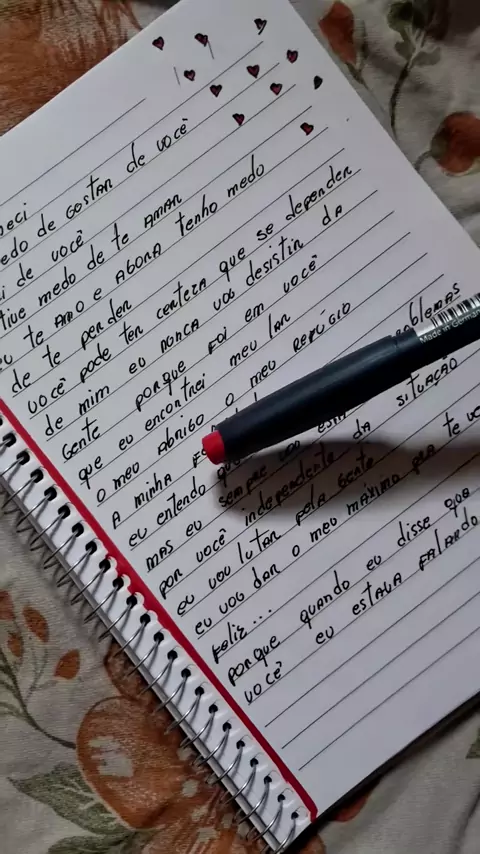 heci
edo de gostar de você
ei de você
tive medo de te amar
eu te amo e agora tenho medo
de te perder
você pode ter certeza que se depender
de mim eu nunca vou desistir da
gente porque foi em você
que eu encontrei meu lar
o meu abrigo o meu refúgio
A minha fo
eu entendo que oblemas
mas eu sempre vou esta
por você independente da situação
eu vou lutar pela gente
eu vou dar o meu máximo pra te ve
feliz...
porque quando eu disse que
você eu estava falando
Made in German